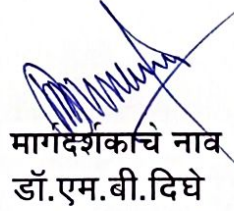 मार्गदर्शकाचे नाव
डॉ.एम.बी.दिघे